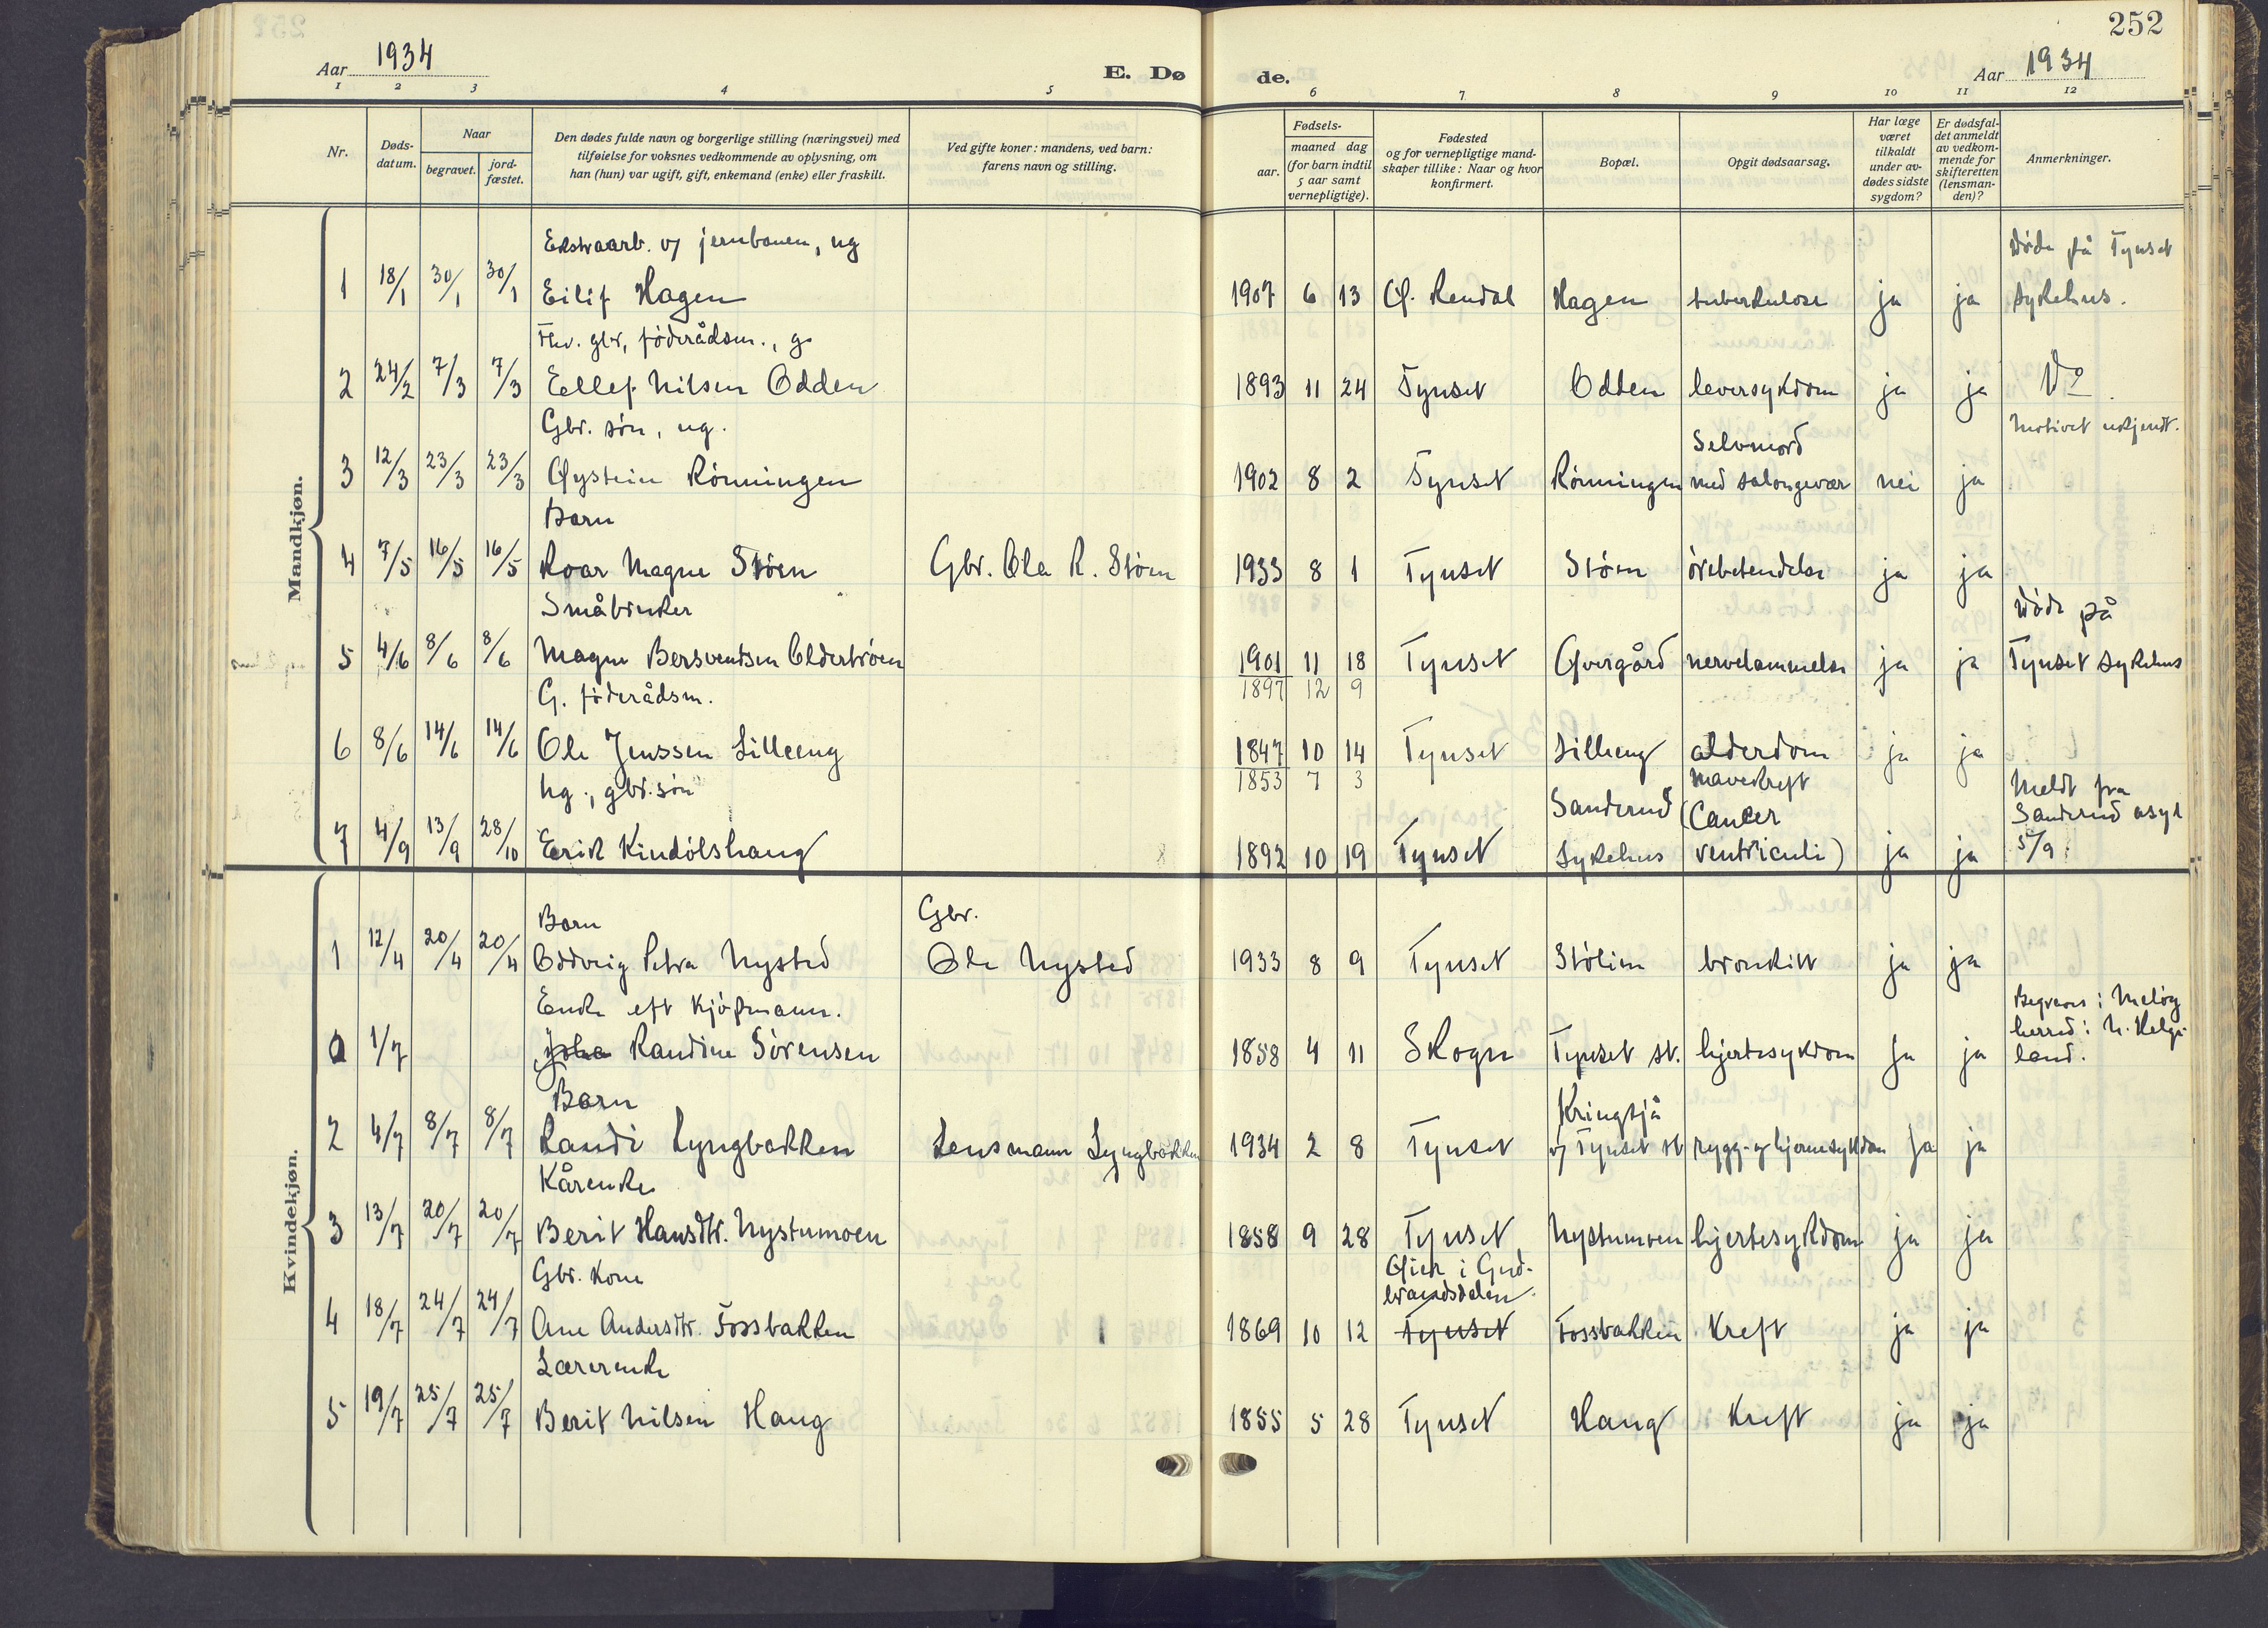 252
Aar 1934
E. Dø de.
Aar 1934
1 2 3 4 5 6 7 8 9 10 11 12
Nr.
Døds-
datum.
Naar
begravet.
jord-
fæstet.
Den dødes fulde navn og borgerlige stilling (næringsvei) med
tilføielse for voksnes vedkommende av oplysning, om
han (hun) var ugift, gift, enkemand (enke) eller fraskilt.
Ved gifte koner: mandens, ved barn:
farens navn og stilling.
Fødsels-
aar.
maaned dag
(for barn indtil
5 aar samt
vernepligtige).
Fødested
og for vernepligtige mand-
skaper tillike: Naar og hvor
konfirmert.
Bopæl.
Opgit dødsaarsag.
Har læge
været
tilkaldt
under av-
dødes sidste
sygdom?
Er dødsfal-
det anmeldt
av vedkom-
mende for
skifteretten
(lensman-
den)?
Anmerkninger.
Mandkjøn.
Ekstraarb. v/ jernbanen, ug Døde på Tynset
1 18/1 30/1 30/1 Eilif Hagen 1907 6 13 Ø. Rendal Hagen tuberkulose ja ja sykehus.
Fhv. gbr, føderådsm., g.
2 24/2 7/3 7/3 Eellef Nilsen Odden 1893 11 24 Tynset Odden leversykdom ja ja Do
Gbr. søn, ug. Selvmord Motivet ukjendt.
3 12/3 23/3 23/3 Øystein Rønningen 1902 8 2 Tynset Rønningen med salongevær nei ja
Barn
4 7/5 16/5 16/5 Roar Magne Støen Gbr. Ola R. Støen 1933 8 1 Tynset Støen ørebetendelse ja ja
Småbruker Døde på
5 4/6 8/6 8/6 Magne Bersvendsen Oldertrøen 1901 11 18 Tynset Øvergård nervelammelse ja ja Tynset sykehus
G. føderådsm. 1897 12 9
6 8/6 14/6 14/6 Ole Jenssen Lilleeng 1847 10 14 Tynset Lilleeng alderdom ja ja
ug., gbr. søn 1853 7 3 Sanderud mavekreft (Cancer Meldt fra Sanderud asyl
7 4/9 13/9 28/10 Erik Kindølshaug 1892 10 19 Tynset sykehus ventriculi) ja ja 5/9.
Kvindekjøn.
Barn Gbr.
1 12/4 20/4 20/4 Oddveig Petra Nysted Ole Nysted 1933 8 9 Tynset Stølien bronkitt ja ja
Enke eft kjøpmann. Begraves i Meløy
0 1/7 Randine Sørensen 1858 4 11 Skogn Tynset st. hjertesykdom ja ja herred i N. Helge-
land.
Barn Kringsjå
2 4/7 8/7 8/7 Randi Lyngbakken Lensmann Lyngbakken 1934 2 8 Tynset v/ Tynset st rygg- og hjernesykdom Ja ja
Kårenke
3 13/7 20/7 20/7 Berit Hansdtr. Nystumoen 1858 9 28 Tynset Nystumoen hjertesykdom ja ja
Gbr. kone Øier i Gud-
brandsdalen.
4 18/7 24/7 24/7 Ane Andersdtr. Fossbakken 1869 10 12 Tynset Fossbakken Kreft ja ja
Lærerenke
5 19/7 25/7 25/7 Berit Nilsen Haug 1855 5 28 Tynset Haug Kreft ja ja